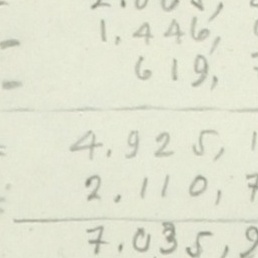 1.446,
619,
4.925,1
2.110,7
7.035,9